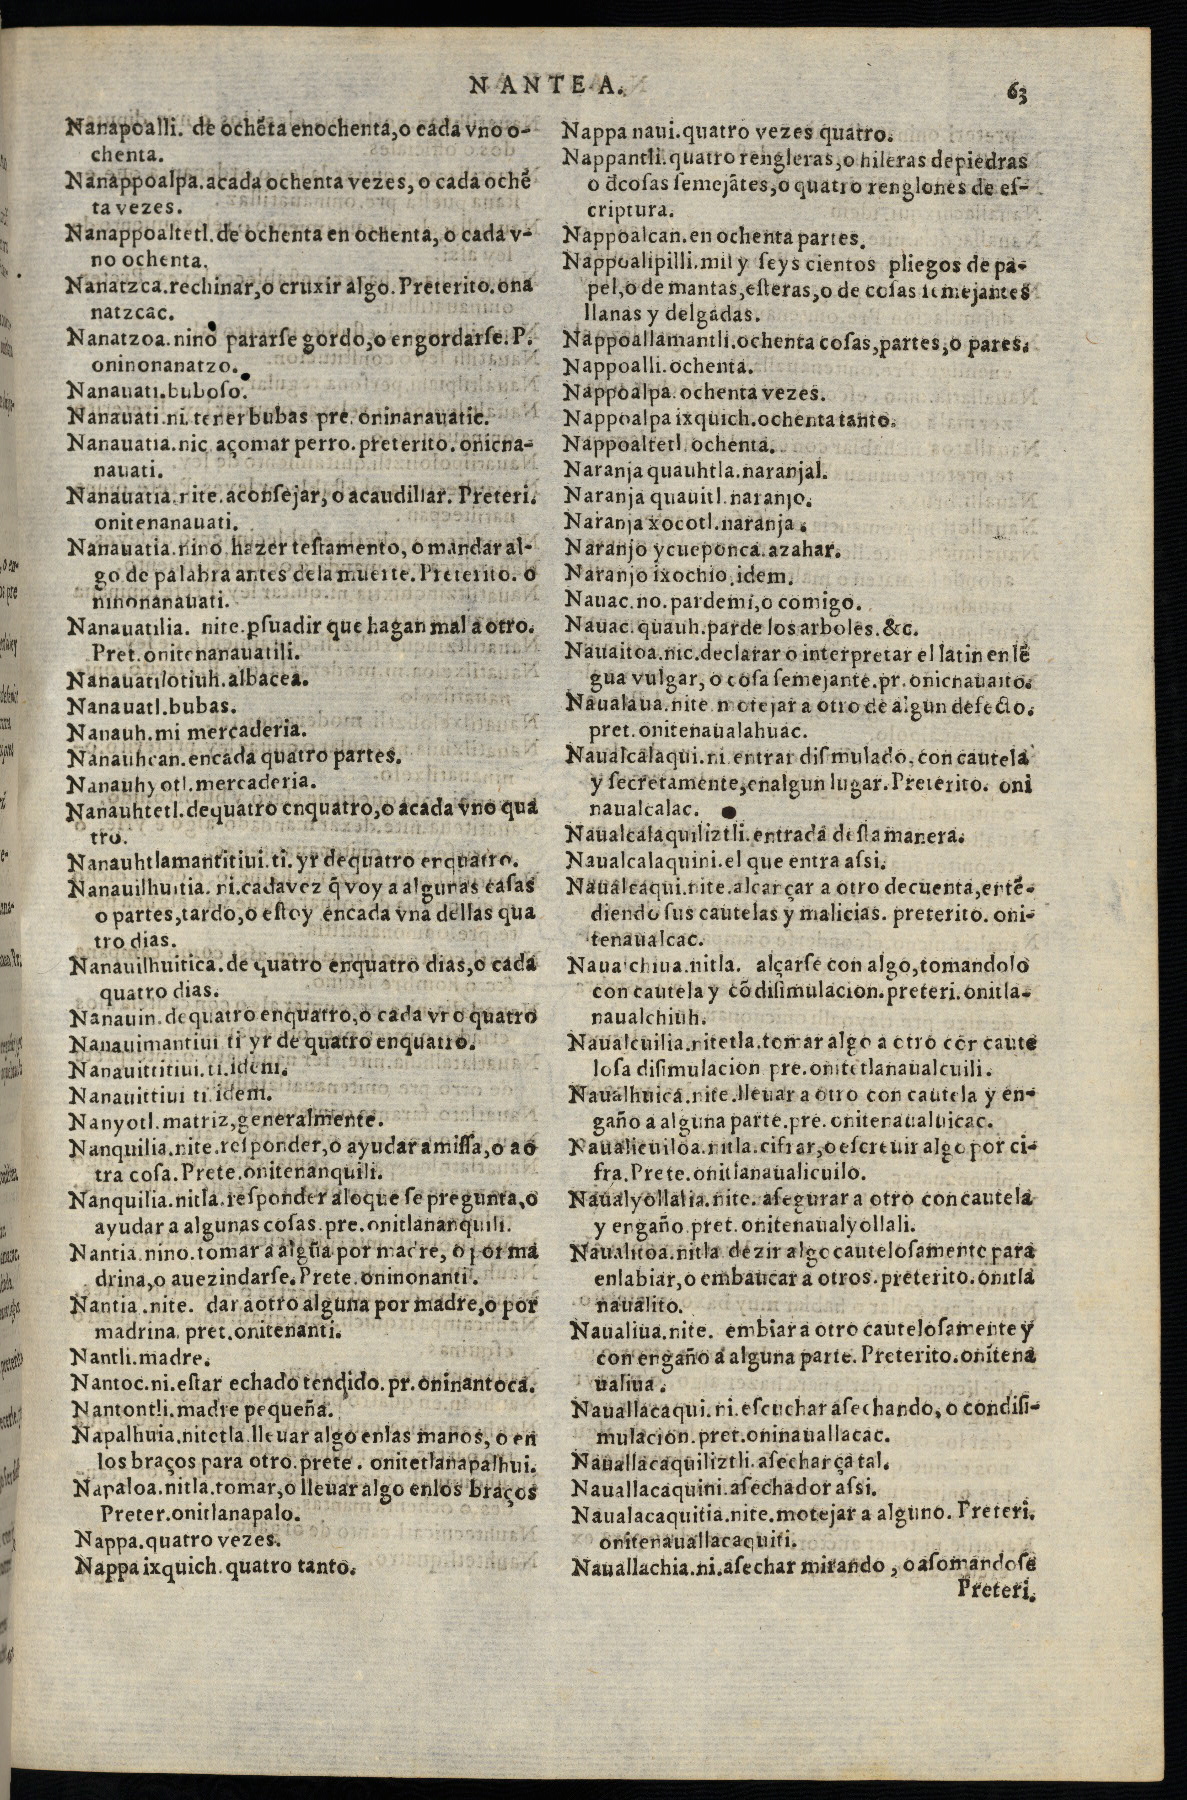 NANTE A.
63
Nanapoalli. de ochẽta enochenta,o cada vno o-
chenta.
Nanappoalpa.acada ochenta vezes, o cada ochẽ
ta vezes.
Nanappoaltetl.de ochenta en ochenta, o cada v-
no ochenta.
Nanatzca.rechinar,o cruxir algo. Preterito.ona
natzcac.
Nanatzoa.nino pararse gordo,o engordarse. P.
oninonanatzo.
Nanauati.buboso.
Nanauati.ni.tener bubas pre. oninanauatic.
Nanauatia.nic açomar perro.preterito. onicna-
nauati.
Nanauatia.nite.aconsejar, o acaudillar. Preteri.
onitenanauati.
Nanauatia.nino hazer testamento, o mandar al-
go de palabra antes dela muerte. Preterito. o
ninonanauati.
Nanauatilia. nite.psuadir que hagan mal a otro.
Pret.onitenanauatili.
Nanauatilotiuh.albacea.
Nanauatl.bubas.
Nanauh.mi mercaderia.
Nanauhcan.encada quatro partes.
Nanauhyotl.mercaderia.
Nanauhtetl.dequatro enquatro,o acada vno qua
tro.
Nanauhtlamantitiui.ti.yr dequatro enquatro.
Nanauilhuitia. ni.cadavez q̃ voy a algunas casas
o partes,tardo,o estoy encada vna dellas qua
tro dias.
Nanauilhuitica.de quatro enquatro dias,o cada
quatro dias.
Nanauin.dequatro enquatro,o cada vno quatro
Nanauimantiui ti yr de quatro enquatro.
Nanauittitiui.ti.idem.
Nanauittiui ti.idem.
Nanyotl.matriz,generalmente.
Nanquilia.nite.responder,o ayudar a missa,o a o
tra cosa.Prete.onitenanquili.
Nanquilia.nitla.responder aloque se pregunta,o
ayudar a algunas cosas.pre.onitlananquili.
Nantia.nino.tomar a algũa por madre, o por ma
drina,o auezindarse.Prete.oninonanti.
Nantia.nite. dar aotro alguna por madre,o por
madrina. pret.onitenanti.
Nantli.madre.
Nantoc.ni.estar echado tendido.pr.oninantoca.
Nantontli.madre pequeña.
Napalhuia.nitetla.lleuar algo enlas manos, o en
los braços para otro.prete. onitetlanapalhui.
Napaloa.nitla.tomar,o lleuar algo enlos braços
Preter.onitlanapalo.
Nappa.quatro vezes.
Nappa ixquich.quatro tanto.
Nappa naui.quatro vezes quatro.
Nappantli.quatro rengleras,o hileras depiedras
o dcosas semejãtes,o quatro renglones de es-
criptura.
Nappoalcan.en ochenta partes.
Nappoalipilli.mil y seys cientos pliegos de pa-
pel,o de mantas,esteras,o de cosas semejantes
llanas y delgadas.
Nappoallamantli.ochenta cosas,partes,o pares.
Nappoalli.ochenta.
Nappoalpa.ochenta vezes.
Nappoalpa ixquich.ochenta tanto.
Nappoaltetl.ochenta.
Naranja quauhtla.naranjal.
Naranja quauitl.naranjo.
Naranja xocotl.naranja.
Naranjo ycueponca.azahar.
Naranjo ixochio.idem.
Nauac.no.pardemi,o comigo.
Nauac.quauh.par de los arboles.&c.
Nauaitoa.nic.declarar o interpretar el latin en lẽ
gua vulgar, o cosa semejante.pr.onicnauaito.
Naualaua.nite.motejar a otro de algun defecto.
pret.onitenaualahuac.
Naualcalaqui.ni.entrar disimulado,con cautela
y secretamente,enalgun lugar.Preterito. oni
naualcalac.
Naualcalaquiliztli.entrada desta manera.
Naualcalaquini.el que entra assi.
Naualcaqui.nite.alcançar a otro decuenta,entẽ-
diendo sus cautelas y malicias. preterito. oni-
tenaualcac.
Naualchiua.nitla. alçarse con algo,tomandolo
con cautela y cõ disimulacion.preteri.onitla-
naualchiuh.
Naualcuilia.nitetla.tomar algo a otro con caute
losa disimulacion pre.onitetlanaualcuili.
Naualhuica.nite.lleuar a otro con cautela y en-
gaño a alguna parte.pre.onitenaualuicac.
Naualicuiloa.nitla.cifrar,o escreuir algo por ci-
fra.Prete.onitlanaualicuilo.
Naualyollalia.nite. asegurar a otro con cautela
y engaño.pret.onitenaualyollali.
Naualitoa.nitla dezir algo cautelosamente para
enlabiar,o embaucar a otros.preterito.onitla
naualito.
Naualiua.nite. embiar a otro cautelosamente y
con engaño a alguna parte. Preterito.onitena
ualiua.
Nauallacaqui.ni.escuchar asechando, o condisi-
mulacion.pret.oninauallacac.
Nauallacaquiliztli.asechança tal.
Nauallacaquini.asechador assi.
Naualacaquitia.nite.motejar a alguno. Preteri.
onitenauallacaquiti.
Nauallachia.ni.asechar mirando, o asomandose
Preteri.